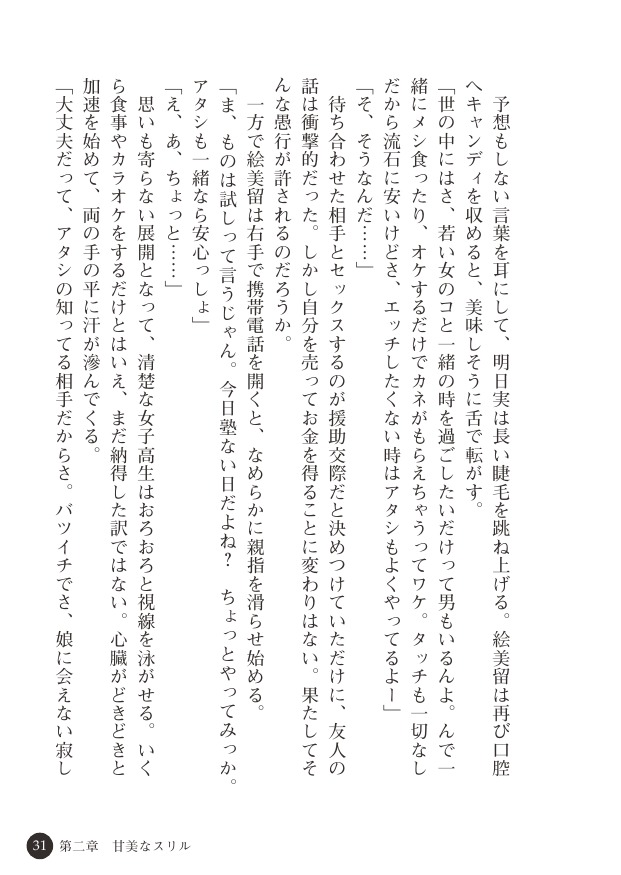 予想もしない言葉を耳にして、明日実は長い睫毛を跳ね上げる。絵美留は再び口腔
へキャンディを収めると、美味しそうに舌で転がす。
「世の中にはさ、若い女のコと一緒の時を過ごしたいだけって男もいるんよ。んで一
緒にメシ食ったり、オケするだけでカネがもらえちゃうってワケ。タッチも一切なし
だから流石に安いけどさ、エッチしたくない時はアタシもよくやってるよー」
「そ、そうなんだ……」
待ち合わせた相手とセックスするのが援助交際だと決めつけていただけに、友人の
話は衝撃的だった。しかし自分を売ってお金を得ることに変わりはない。果たしてそ
んな愚行が許されるのだろうか。
一方で絵美留は右手で携帯電話を開くと、なめらかに親指を滑らせ始める。
「ま、ものは試しって言うじゃん。今日塾ない日だよね？　ちょっとやってみっか。
アタシも一緒なら安心っしょ」
「え、あ、ちょっと……」
思いも寄らない展開となって、清楚な女子高生はおろおろと視線を泳がせる。いく
ら食事やカラオケをするだけとはいえ、まだ納得した訳ではない。心臓がどきどきと
加速を始めて、両の手の平に汗が滲んでくる。
「大丈夫だって、アタシの知ってる相手だからさ。バツイチでさ、娘に会えない寂し
31 第二章　甘美なスリル